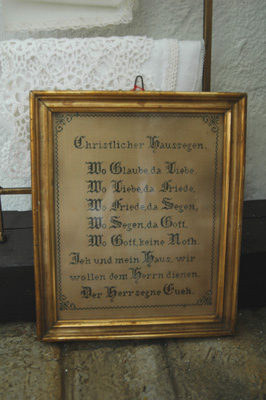 Christlicher Haussegen.
Wo Glaube, da Liebe.
Wo Liebe, da Friede.
Wo Friede, da Segen.
Wo Segen, da Gott.
Wo Gott, keine Noth.
Ich und mein Haus, wir
wollen dem Herrn dienen.
Der Herr segne Euch.